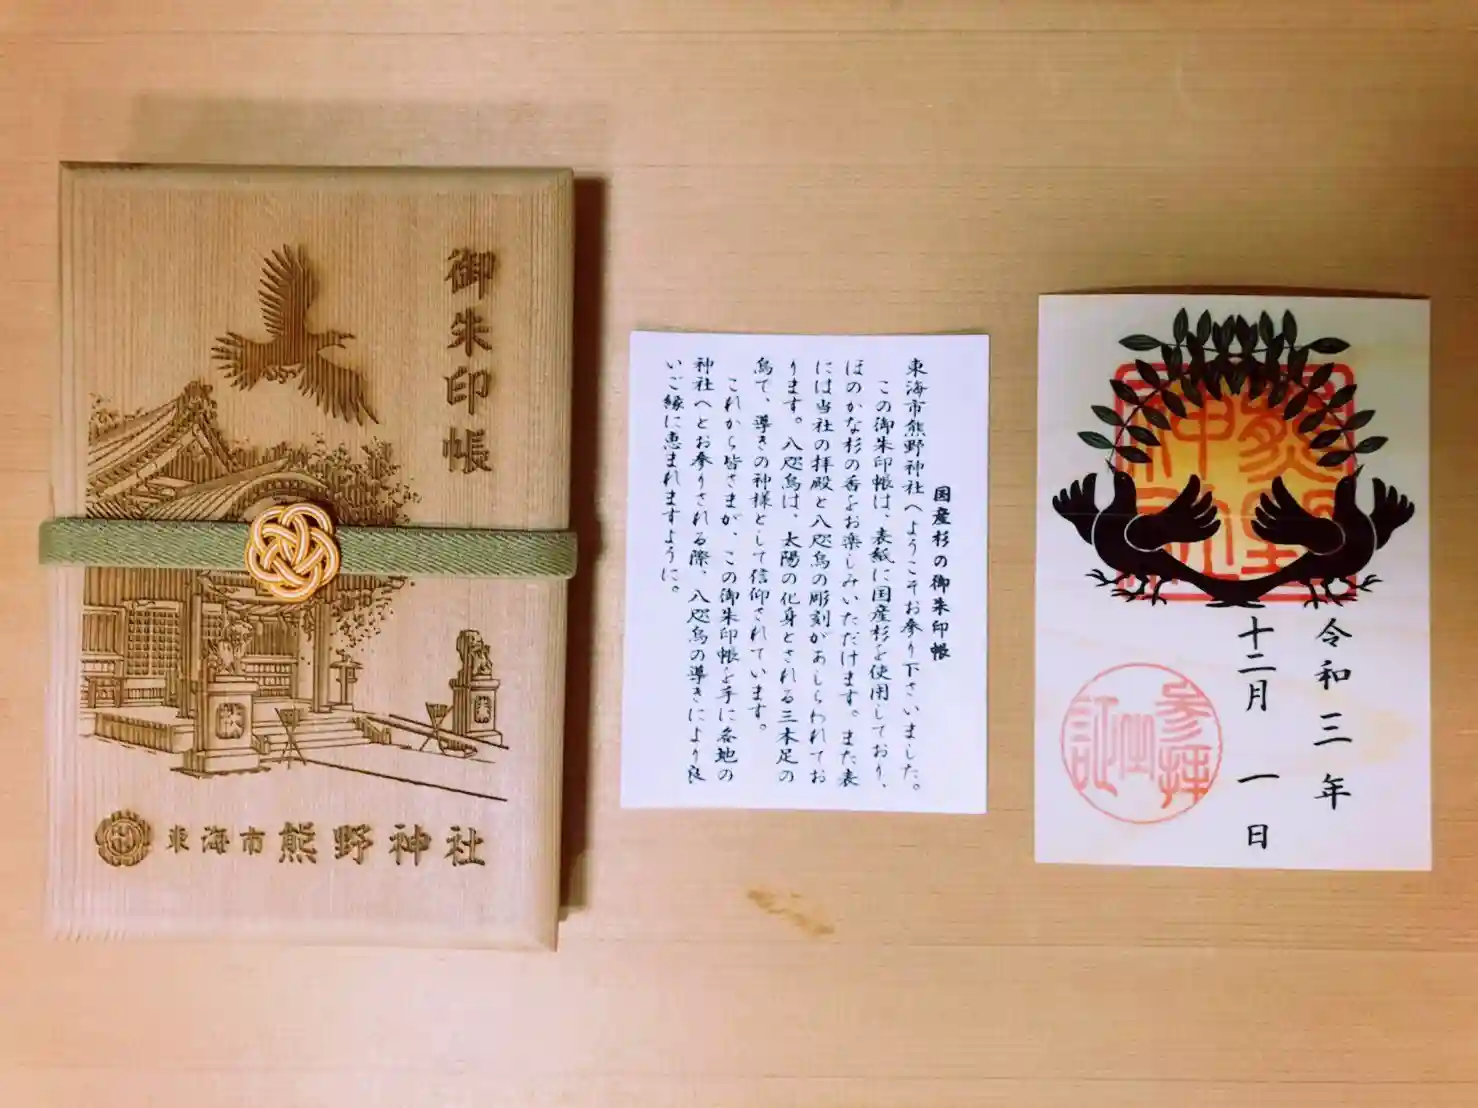 御朱印帳
東海市熊野神社
国産杉の御朱印帳
東海市熊野神社へようこそお参り下さいました。
この御朱印帳は、表紙に国産杉を使用しており、
ほのかな杉の香をお楽しみいただけます。また表
には当社の拝殿と八咫烏の彫刻があしらわれてお
ります。八咫烏は、太陽の化身とされる三本足の
烏で、導きの神様として信仰されています。
これから皆さまが、この御朱印帳を手に各地の
神社へとお参りされる際、八咫烏の導きにより良
いご縁に恵まれますように。
熊野
神社
令和三年
十二月一日
参拝
証